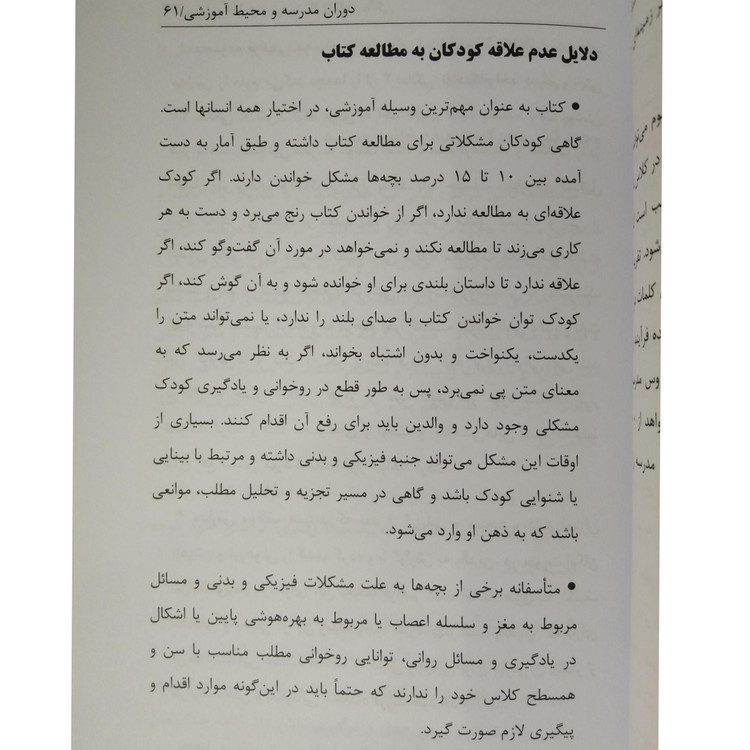 دوران مدرسه و محیط آموزشی/۶۱
دلایل عدم علاقه کودکان به مطالعه کتاب
• کتاب به عنوان مهم‌ترین وسیله آموزشی، در اختیار همه انسانها است.
گاهی کودکان مشکلاتی برای مطالعه کتاب داشته و طبق آمار به دست
آمده بین ۱۰ تا ۱۵ درصد بچه‌ها مشکل خواندن دارند. اگر کودک
علاقه‌ای به مطالعه ندارد، اگر از خواندن کتاب رنج می‌برد و دست به هر
کاری می‌زند تا مطالعه نکند و نمی‌خواهد در مورد آن گفت‌وگو کند، اگر
علاقه ندارد تا داستان بلندی برای او خوانده شود و به آن گوش کند، اگر
کودک توان خواندن کتاب با صدای بلند را ندارد، یا نمی‌تواند متن را
یکدست، یکنواخت و بدون اشتباه بخواند، اگر به نظر می‌رسد که به
معنای متن پی نمی‌برد، پس به طور قطع در روخوانی و یادگیری کودک
مشکلی وجود دارد و والدین باید برای رفع آن اقدام کنند. بسیاری از
اوقات این مشکل می‌تواند جنبه فیزیکی و بدنی داشته و مرتبط با بینایی
یا شنوایی کودک باشد و گاهی در مسیر تجزیه و تحلیل مطلب، موانعی
باشد که به ذهن او وارد می‌شود.
• متأسفانه برخی از بچه‌ها به علت مشکلات فیزیکی و بدنی و مسائل
مربوط به مغز و سلسله اعصاب یا مربوط به بهره‌هوشی پایین یا اشکال
در یادگیری و مسائل روانی، توانایی روخوانی مطلب مناسب با سن و
همسطح کلاس خود را ندارند که حتماً باید در این‌گونه موارد اقدام و
پیگیری لازم صورت گیرد.